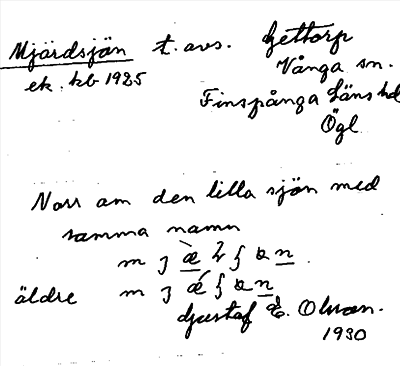 Mjärdsjön t. avs. Gettorp
ek. kb 1925 Vånga sn.
Finspånga läns hd
Ögl.
Norr om den lilla sjön med
samma namn
äldre
Gustaf E. Olson.
1930